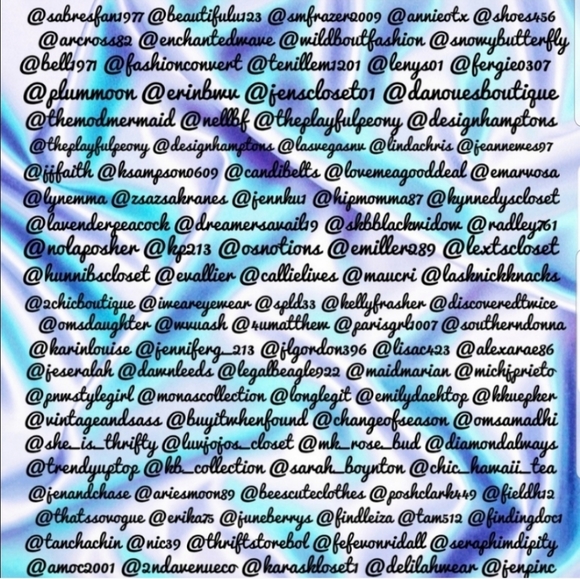 @sabresfan1977 @beautifulu123 @smfrazer2009 @annieotx @shoes456
@arcross82 @enchantedwave @wildboutfashion @snowybutterfly
@bell1971 @fashionconvert @tenillem1201 @lenys01 @fergie0307
@plummoon @erinbwv @jenscloset01 @danouesboutique
@themodmermaid @nellbf @theplayfulpeony @designhamptons
@theplayfulpeony @designhamptons @lasvegasnv @lindachris @jeannewes97
@jjfaith @ksampson0609 @candibelts @lovemeagooddeal @emarvosa
@lynemma @zsazsakranes @jennku1 @hipmomma87 @kynnedyscloset
@lavenderpeacock @dreamersavail19 @skbblackwidow @radley761
@nolaposher @kp213 @osnotions @emiller289 @lextscloset
@hunnibscloset @evallier @callielives @maucri @lasknickknacks
@2chicboutique @iweareyewear @spld33 @kellyfrasher @discoveredtwice
@omsdaughter @wvuash @4umatthew @parisgrl1007 @southerndonna
@karinlouise @jenniferg_213 @jlgordon396 @lisac423 @alexarae86
@jeseralah @dawnleeds @legalbeagle922 @maidmarian @michjprieto
@pnwstylegirl @monascollection @longlegit @emilydaehtop @kkuepker
@vintageandsass @buyitwhenfound @changeofseason @omsamadhi
@she_is_thrifty @luvjojos_closet @mk_rose_bud @diamondalways
@trendyuptop @kb_collection @sarah_boynton @chic_hawaii_tea
@jenandchase @ariesmoon89 @beescuteclothes @poshclark449 @fieldh12
@thatssovogue @erika75 @juneberrys @findleiza @tam512 @findingdoc1
@tanchachin @nic39 @thriftstorebol @fefevonridall @seraphimdipity
@amoc2001 @2ndavenueco @karaskloset1 @delilahwear @jenpinc